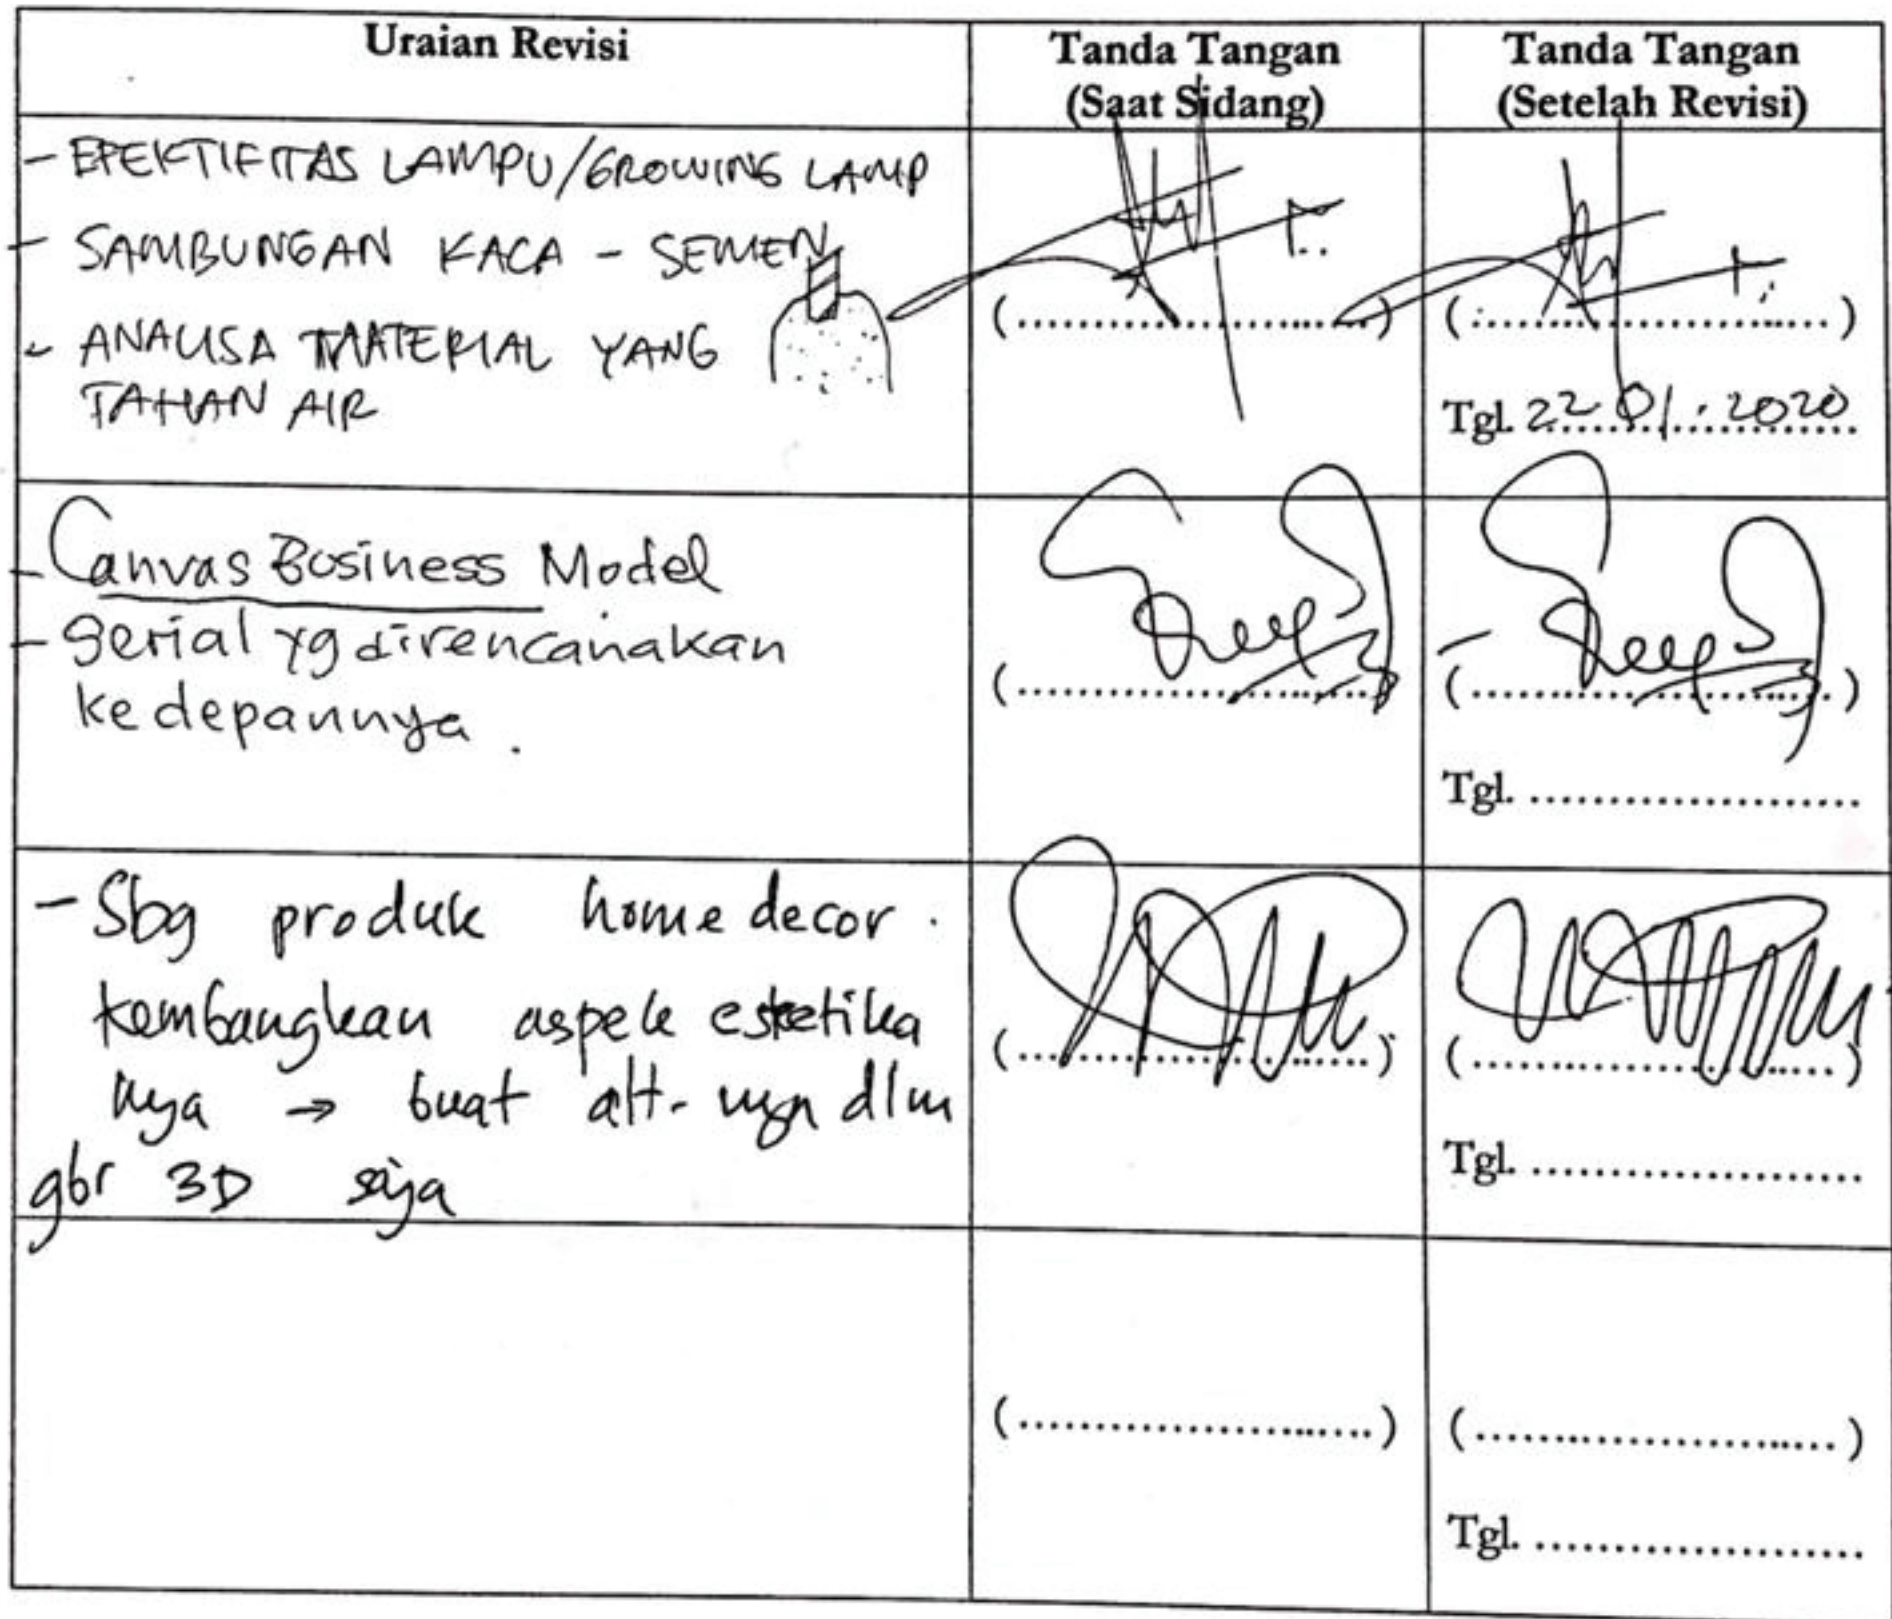 Uraian Revisi
Tanda Tangan
(Saat Sidang)
Tanda Tangan
(Setelah Revisi)
- EFEKTIFITAS LAMPU/GROWING LAMP
- SAMBUNGAN KACA - SEMEN
- ANALISA MATERIAL YANG
TAHAN AIR
(........................)
(........................)
Tgl. 22.01.2020
- Canvas Business Model
- Serial yg direncanakan
kedepannya.
(........................)
(........................)
Tgl. ......................
- Sbg produk home decor.
kembangkan aspek estetika
nya → buat alt-nya dlm
gbr 3D saja
(........................)
(........................)
Tgl. ......................
(........................)
(........................)
Tgl. ......................